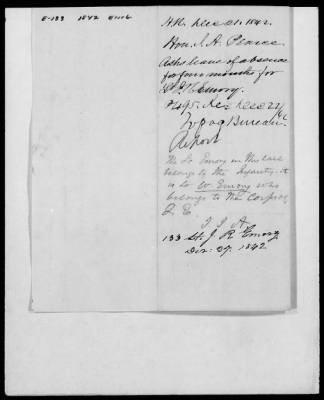 E-133 1842 Emo
H.R. Dec 21. 1842.
Hon. J. A. Pearce
Asks leave of absence
for four months for
Lt. Emory.
Rec Dec 27
Topog Bureau
Report
The Lt Emory in this case
belongs to the Infantry. it
is Lt W. Emory who
belongs to the Corps of
T. E.
133 Lt. J. R. Emory
Dec. 27. 1842